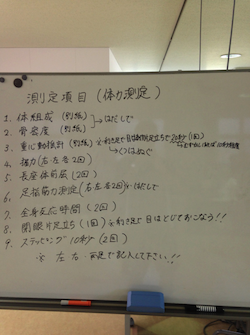 測定項目(体力測定)
1. 体組成(別紙)
2. 骨密度(別紙) →はだしで
3. 重心動揺計(別紙)
→くつはぬぐ
4. 握力(右・左 各2回)
5. 長座体前屈(2回)
6. 足指筋力測定(右・左各2回)※はだしで
7. 全身反応時間(2回)
8. 閉眼片足立ち(1回)※利き足で目はとじておこなう!!
9. ステッピング10秒(2回)
※左右両足で記入して下さい!!